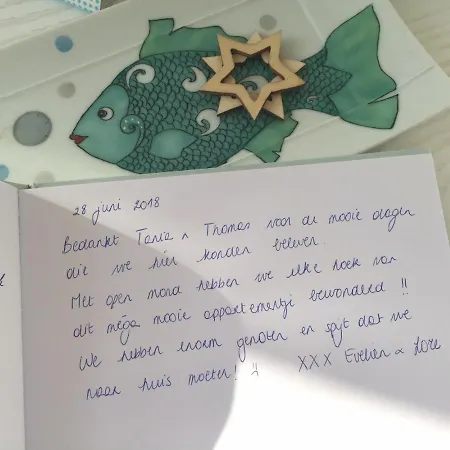 28 juni 2018
Bedankt Tania & Thomas voor de mooie dagen
die we hier konden beleven.
Met open mond hebben we elke hoek van
dit méga mooie appartementje bewonderd !!
We hebben enorm genoten en spijt dat we
naar huis moeten!
XXX Evelien & Lore